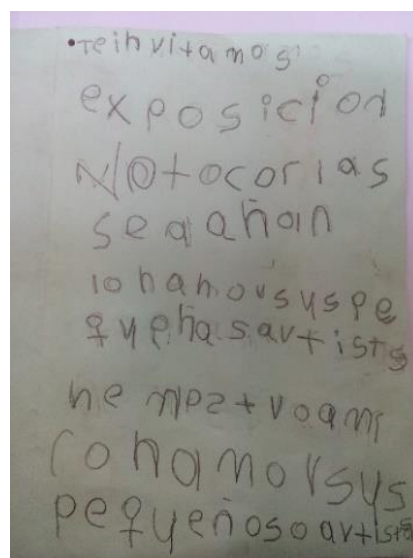 •Te invitamos
exposicion
No tocorlas
se dañan
conamorsuspe
queñasartists
he mpztvoami
conamorsus
pequeñosoartists